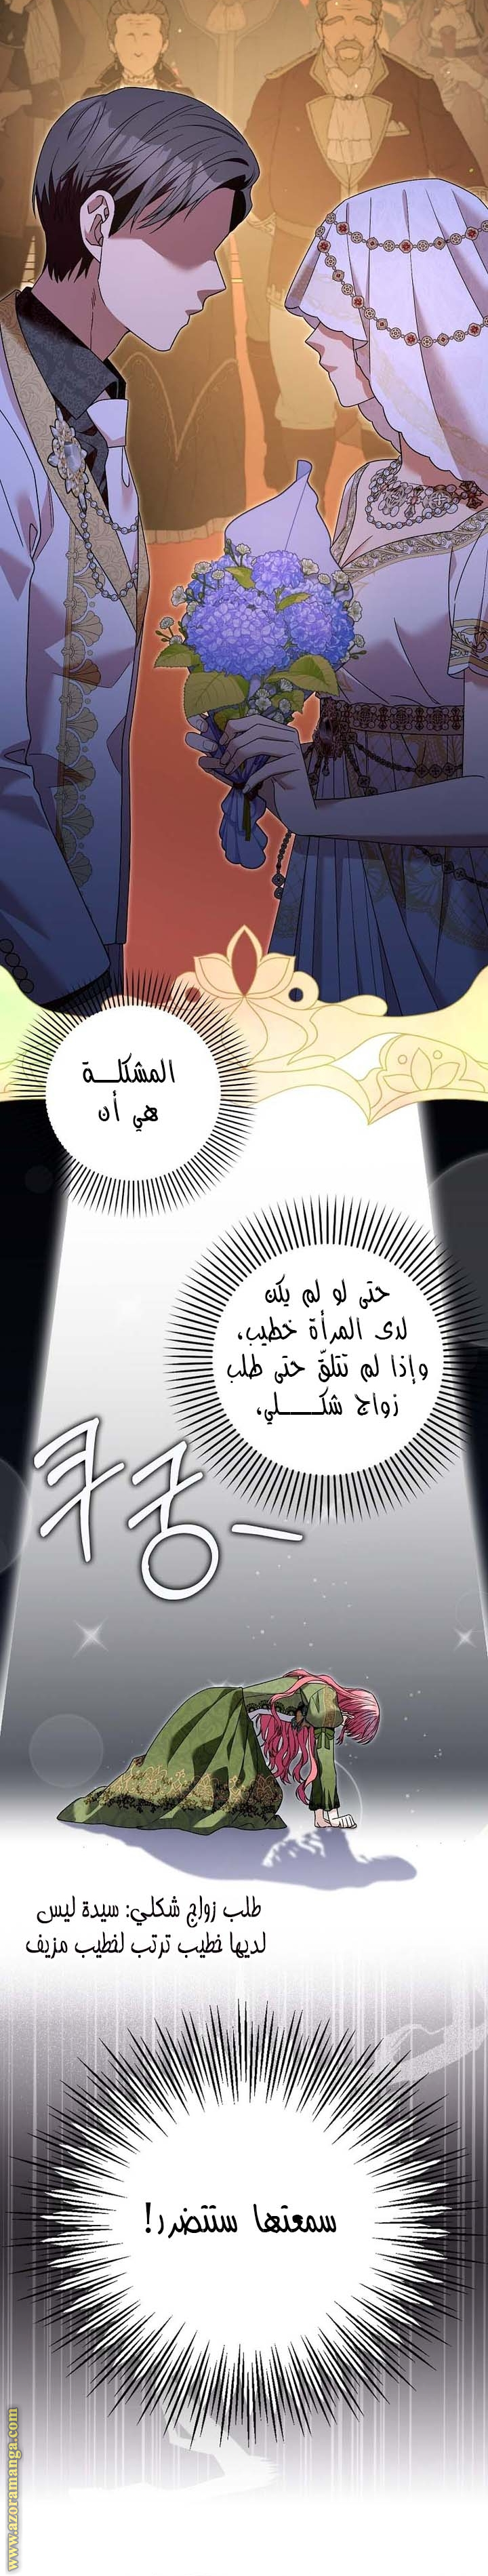 المشكلـــة
هي أن
حتى لو لم يكن
لدى المرأة خطيب،
وإذا لم تتلقّ حتى طلب
زواج شكـــــلي،
쿠궁ㅡ
طلب زواج شكلي: سيدة ليس
لديها خطيب ترتب لخطيب مزيف
سمعتها ستتضرر!
www.azoramanga.com